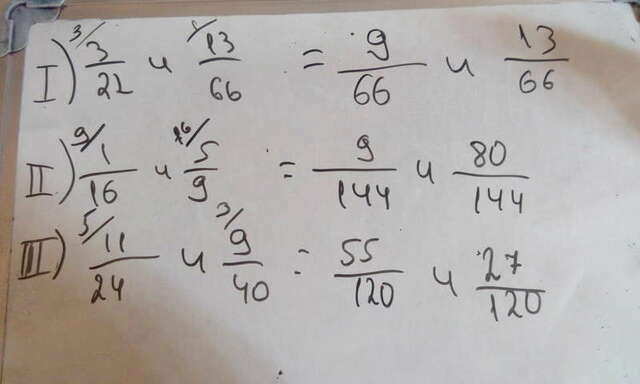 I) 3/ 3/22 и 1/ 13/66 = 9/66 и 13/66
II) 9/ 1/16 и 16/ 5/9 = 9/144 и 80/144
III) 5/ 11/24 и 3/ 9/40 = 55/120 и 27/120